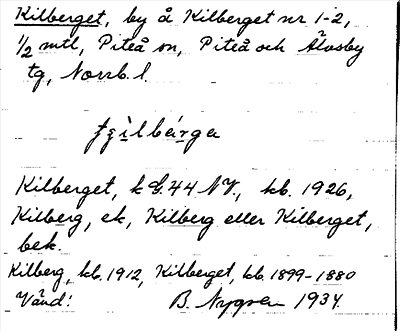 Kilberget, by å Kilberget nr 1-2,
1/2 mtl, Piteå sn, Piteå och Älvsby
tg, Norrb. l.
Kilberget, k G.44 NV., kb. 1926,
Kilberg, ek, Kilberg eller Kilberget,
bek.
Kilberg, kb. 1912, Kilberget, kb. 1899-1880
Vänd! B. Nygren 1934